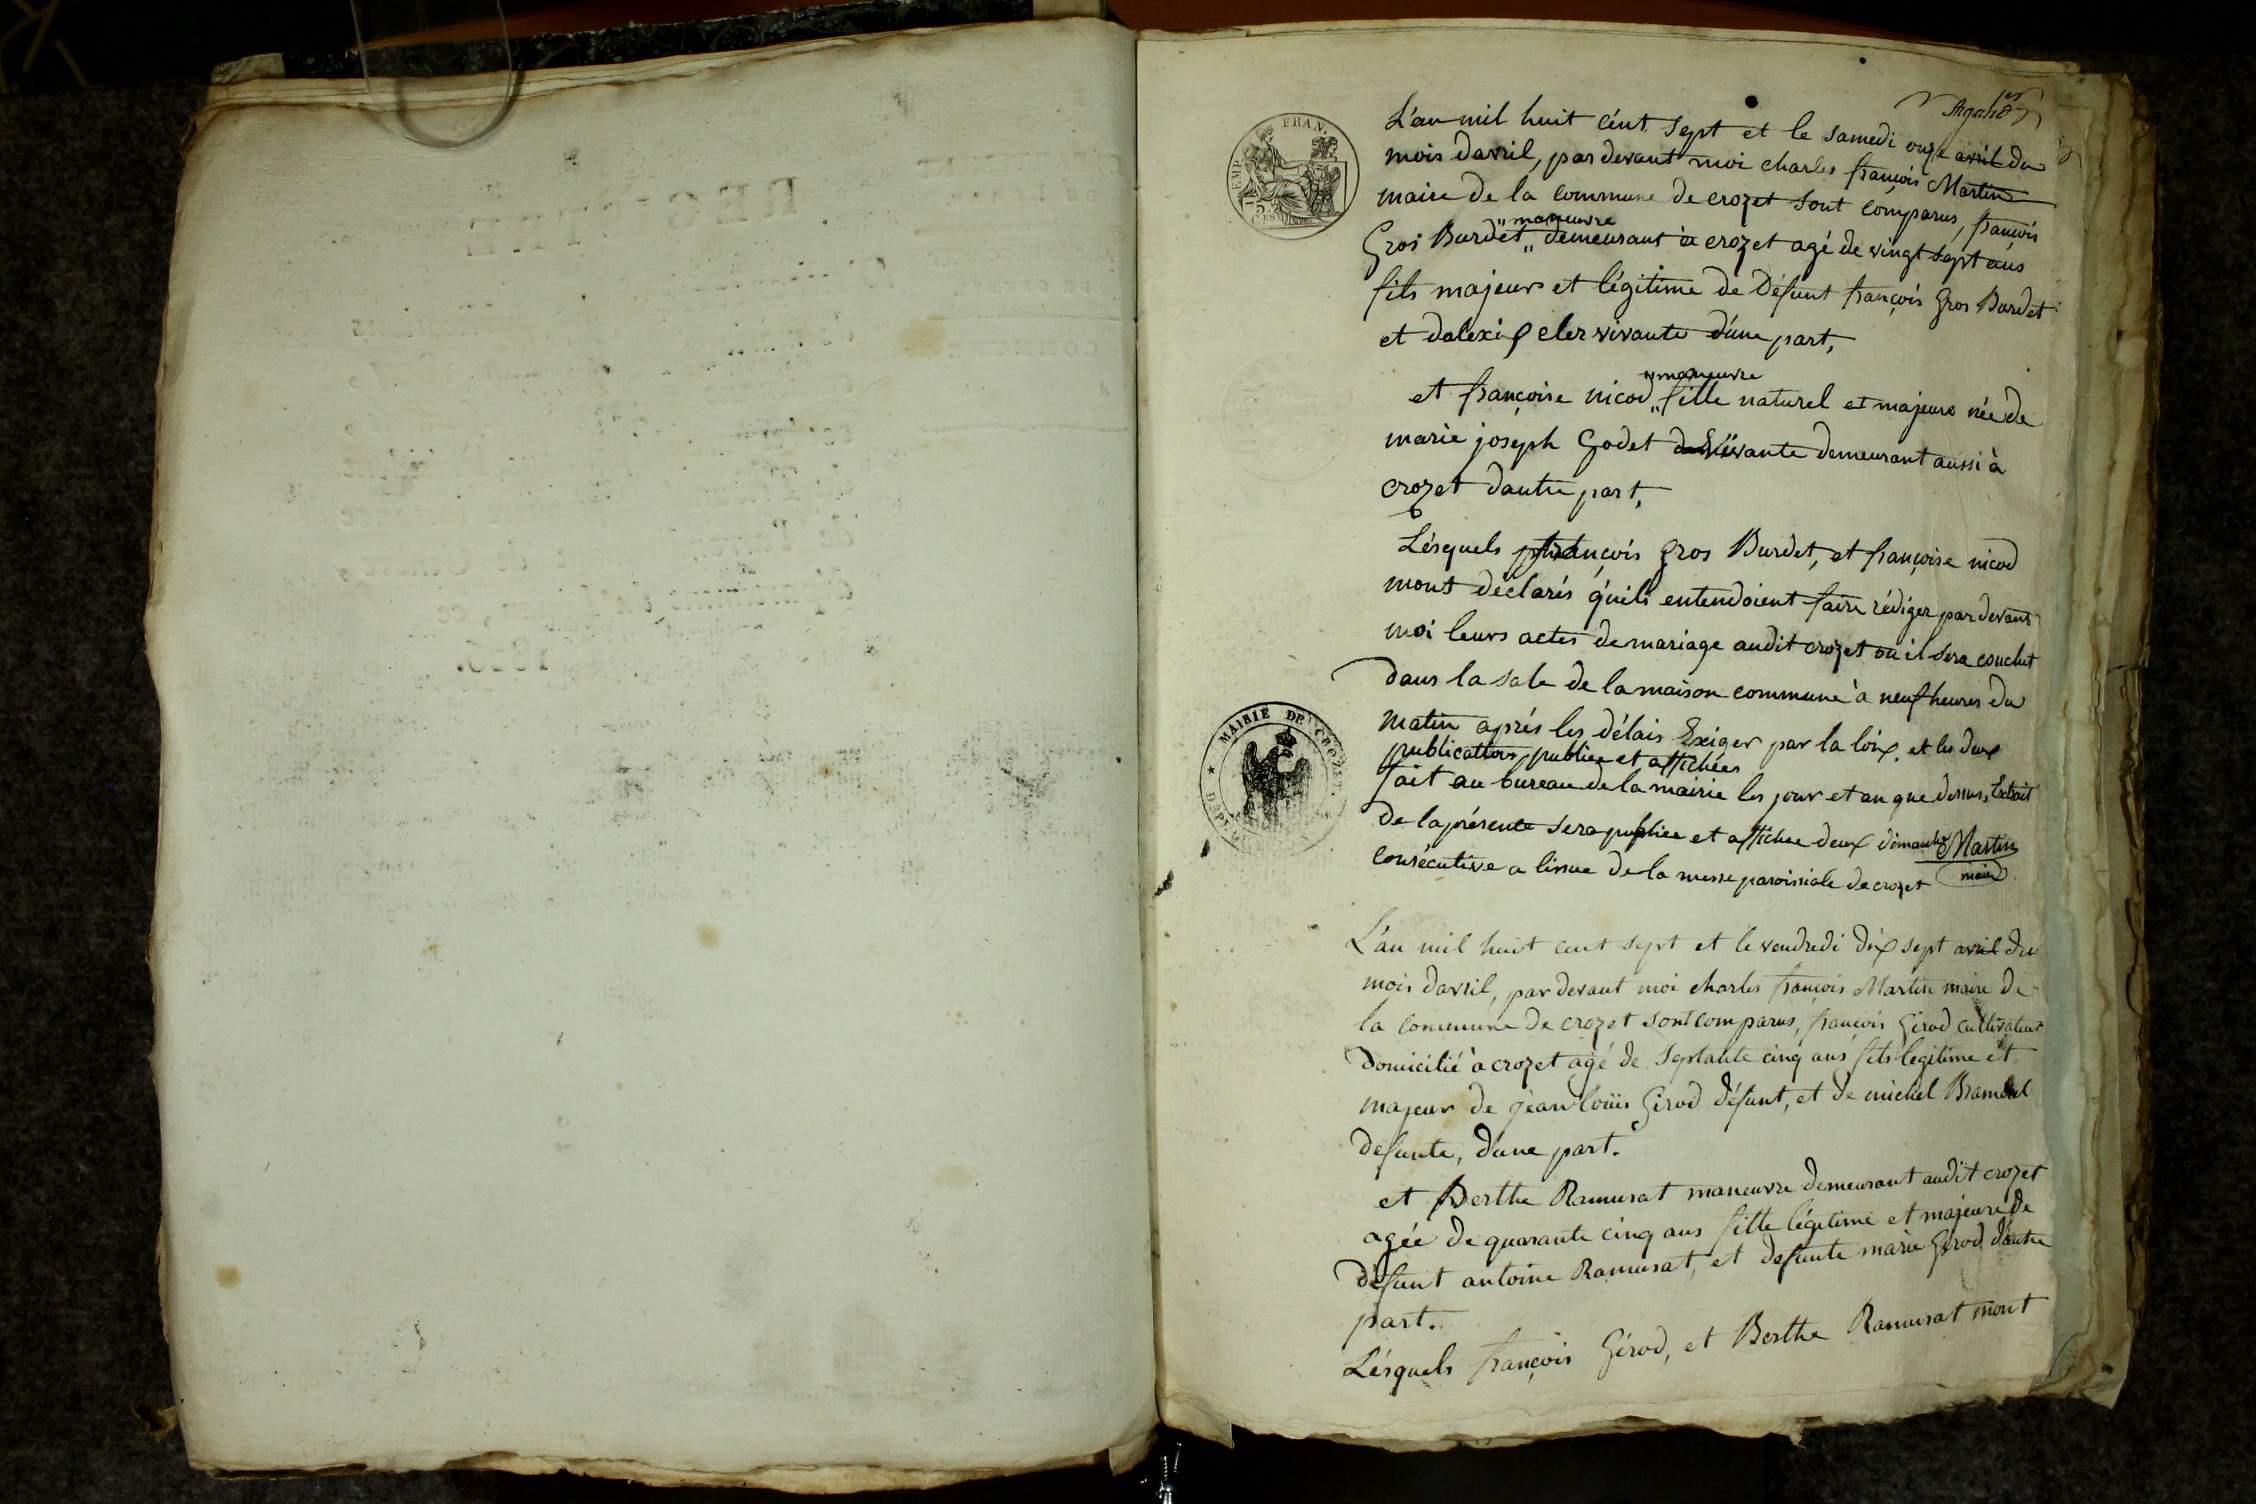 L'an mil huit cént sept et le samedi onze avril du
mois davril, par devant moi charles françois Martin
maire de la commune de crozet sont comparus, françois
"manœuvre
Gros Burdet " demeurant à crozet agé de vingt sept ans
fils majeur et légitime de Défunt françois Gros Burdet
et dalexi cler vivante d'une part,
"manœuvre
et françoise nicod " fille naturel et majeure née de
marie joseph Godet vivante demeurant aussi à
crozet dautre part,
Lésquels françois Gros Burdet, et françoise nicod
mont déclarés qu'ils entendoient faire rédiger par devant
moi leurs actes de mariage audit crozet où il sera couchet
dans la sale de la maison commune à neuf heures du
matin aprés les délais Exiger par la loix et les deux
publications publiee et affichées
fait au bureau de la mairie les jour et an que dessus, Extrait
de la présente sera publiee et affichee deux dimanche
consécutive a lissue de la messe paroissiale de crozet
Martin
maire
L'an mil huit cent sept et le vendredi dix sept avril du
mois davril, par devant moi charles françois Martin maire de
la commune de crozet sont comparus, françois Girod cultivateur
domicilié à crozet agé de septante cinq ans fils legitime et
majeur de jean loüis Girod défunt, et de michel
defunte, d'une part.
et Berthe Ramusat maneuvre demeurant audit crozet
agée de quarante cinq ans fille légitime et majeure de
défunt antoine Ramusat, et defunte marie Girod d'autre
part.
Lésquels françois Gérod, et Berthe Ramusat mont
EMP. FRAN.
MAIRIE DE CROZET